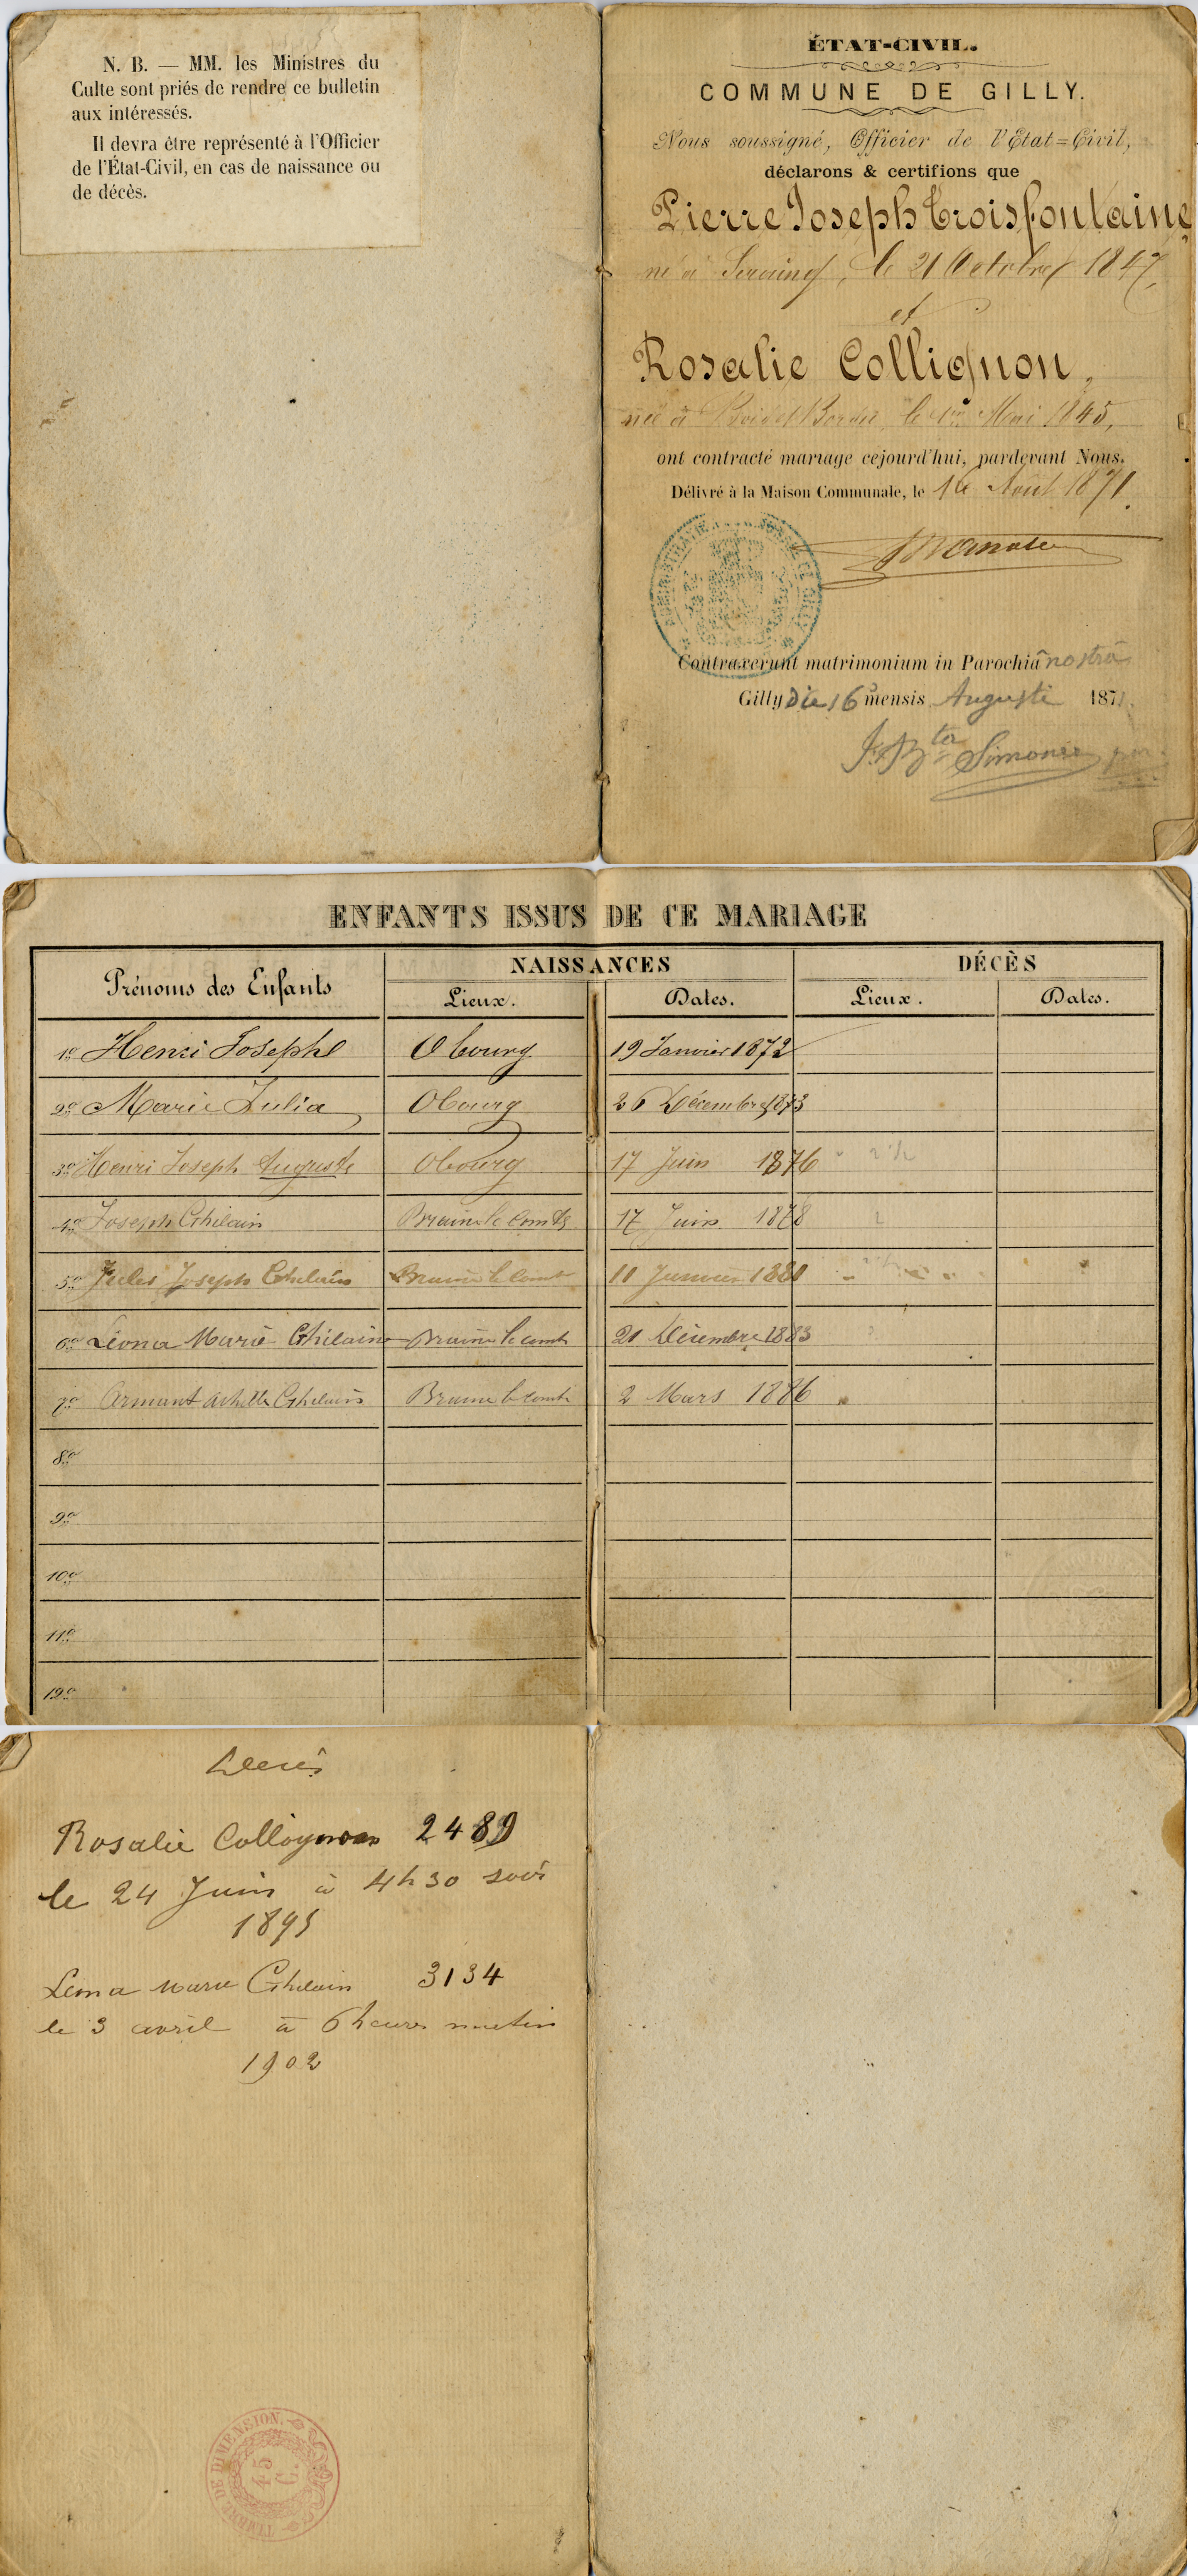 N. B. — MM. les Ministres du
Culte sont priés de rendre ce bulletin
aux intéressés.
Il devra être représenté à l'Officier
de l'État-Civil, en cas de naissance ou
de décès.
ÉTAT-CIVIL.
COMMUNE DE GILLY.
Nous soussigné, Officier de l'Etat=Civil,
déclarons & certifions que
Pierre Joseph Troisfontaine
né à Seraing, le 21 Octobre 1847,
et
Rosalie Collignon,
née à Bois et Borsu, le 1er Mai 1845,
ont contracté mariage cejourd'hui, pardevant Nous.
Délivré à la Maison Communale, le 16 Aout 1871.
Contraxerunt matrimonium in Parochiâ nostrâ
Gilly Die 16â mensis Augusti 1871.
ENFANTS ISSUS DE CE MARIAGE
Prénoms des Enfants NAISSANCES DÉCÈS
Lieux. Dates. Lieux. Dates.
1º Henri Josephe Obourg 19 Janvier 1872
2º Marie Julia Obourg 26 Décembre 1873
3º Henri Joseph Auguste Obourg 17 Juin 1876
4º Joseph Ghilain Braine le Comte 17 Juin 1878
5º Jules Joseph Ghilain Braine le Comt 11 Janvier 1881
6º Léona Marie Ghilaine Braine le comt 21 Décembre 1883
7º Armant Achille Ghilain Braine le comte 2 Mars 1886
8º
9º
10º
11º
12º
Décès
Rosalie Collognon 2489
le 24 Juin à 4h30 soir
1895
Léona Marie Ghilain 3134
le 3 avril à 6 heures matin
1902
TIMBRE DE DIMENSION.
45
C.